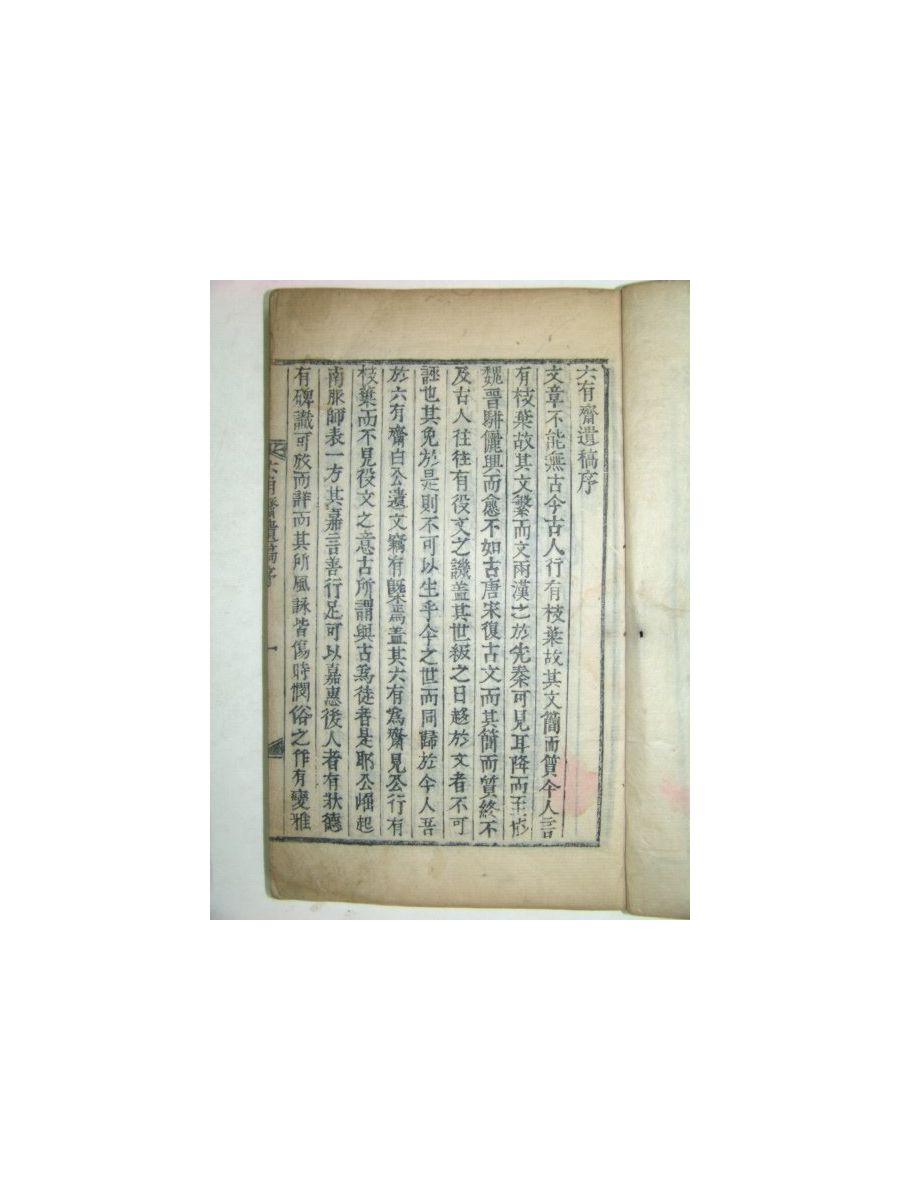 六有齋遺稿序
文章不能無古今古人行有枝葉故其文簡而質今人言
有枝葉故其文繁而文兩漢之於先秦可見耳降而至於
魏晋駢儷興而愈不如古唐宋復古文而其簡而質終不
及古人往往有役文之譏盖其世級之日趍於文者不可
誣也其免於是則不可以生乎今之世而同歸於今人吾
於六有齋白公遺文竊有槩焉盖其六有爲齋見公行有
枝葉而不見役文之意古所謂與古爲徒者是耶公崛起
南服師表一方其嘉言善行足可以嘉惠後人者有狀德
有碑識可放而詳而其所風詠皆傷時憫俗之作有變雅
六有齋遺稿序 一